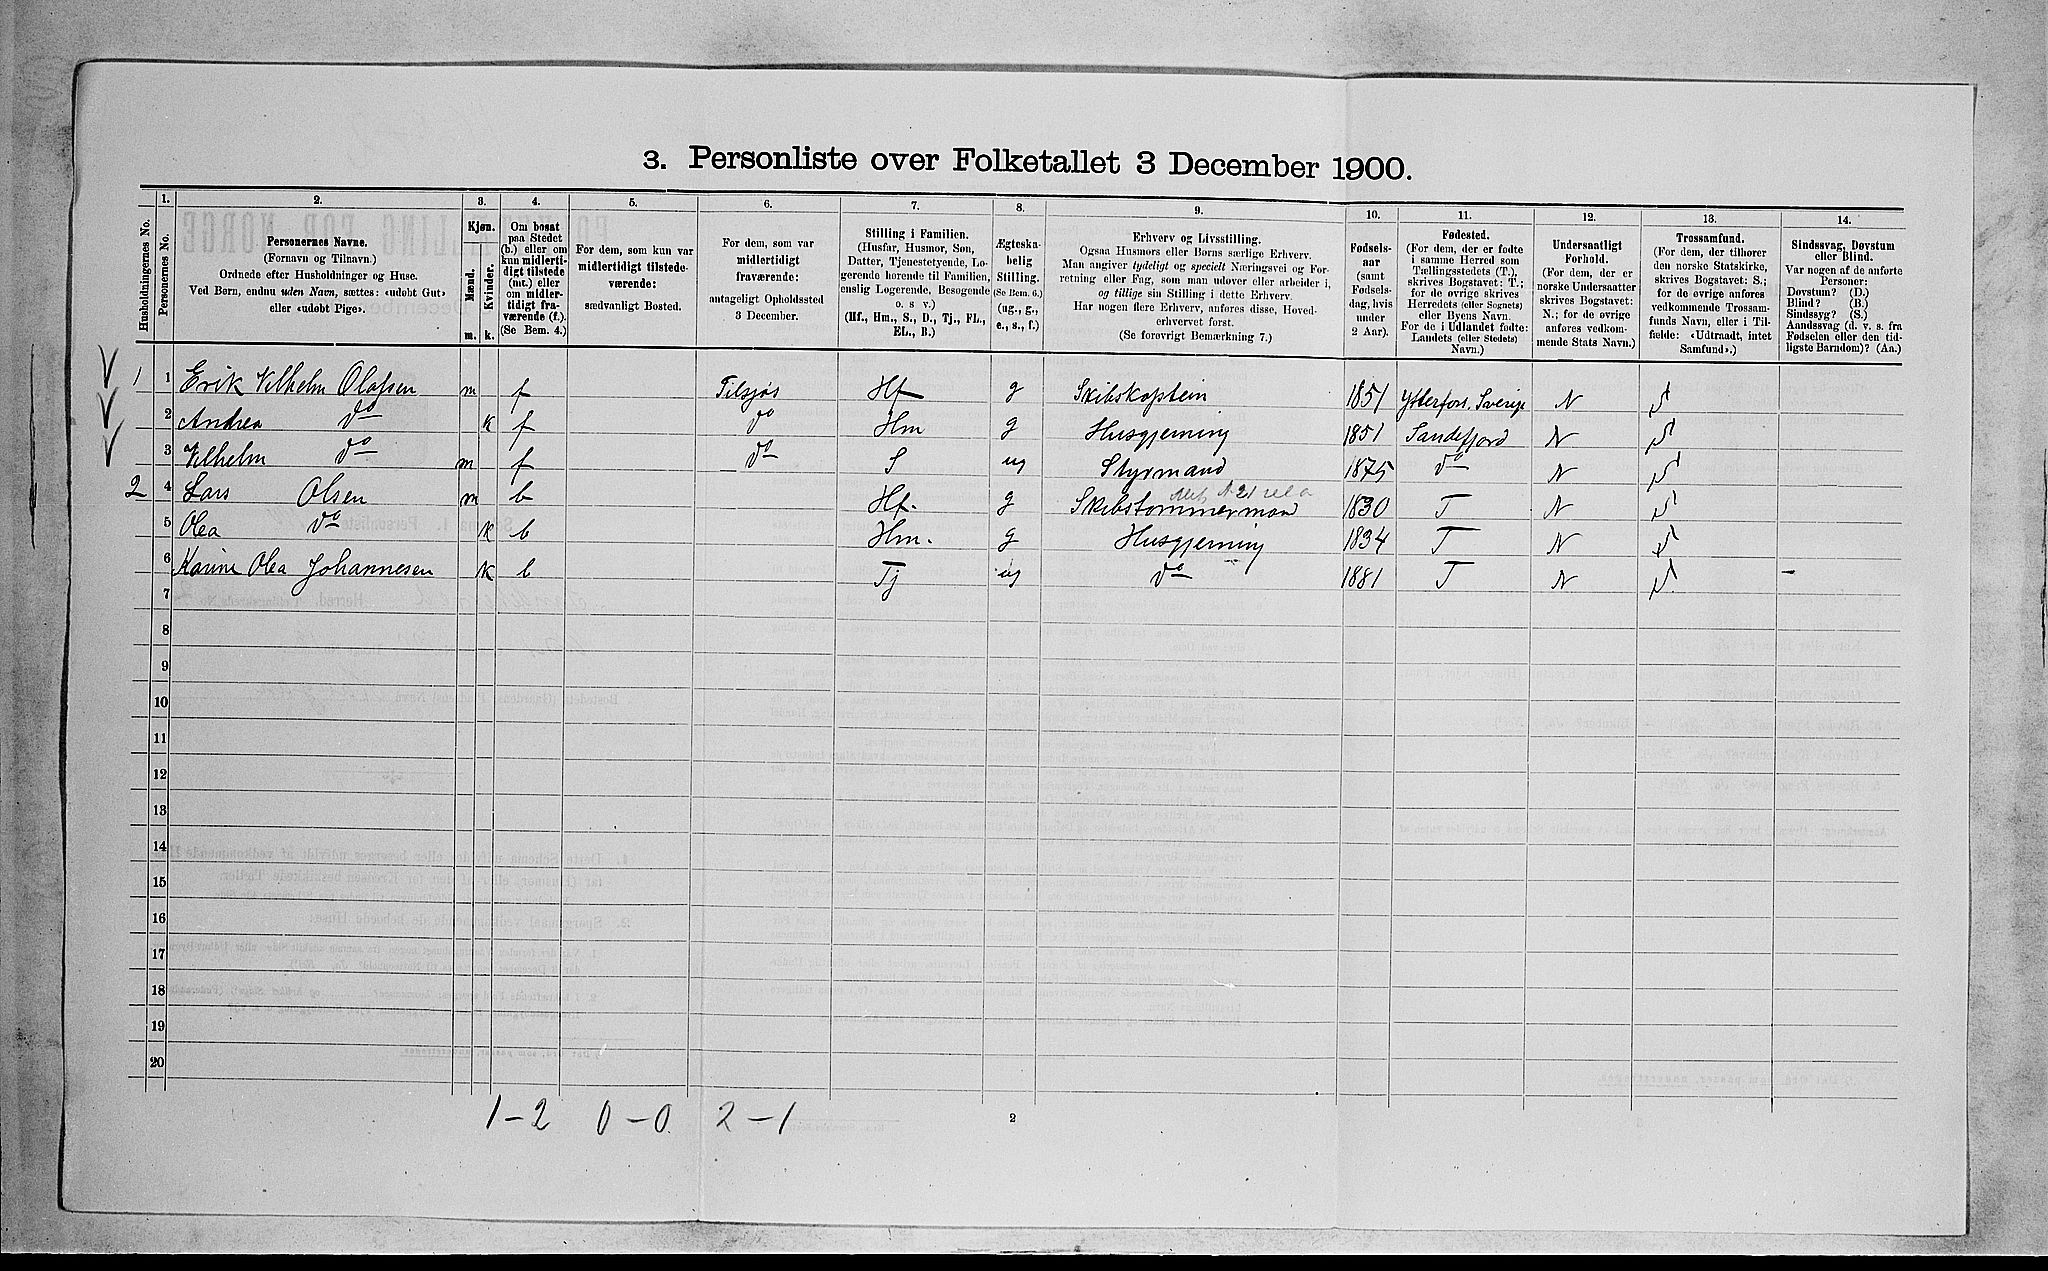 3. Personliste over Folketallet 3 December 1900.
Husholdningernes No.
1. Personernes No.
2. Personernes Navne.
(Fornavn og Tilnavn.)
Ordnede efter Husholdninger og Huse.
Ved Børn, endnu uden Navn, sættes: «udøbt Gut»
eller «udøbt Pige».
3. Kjøn.
Mænd. Kvinder.
m. k.
4. Om bosat
paa Stedet
(b.) eller om
kun midlerti-
digt tilstede
(mt.) eller
om midler-
tidigt fra-
værende (f.).
(Se Bem. 4.)
5. For dem, som kun var
midlertidigt tilstede-
værende:
sædvanligt Bosted.
6. For dem, som var
midlertidigt
fraværende:
antageligt Opholdssted
3 December.
7. Stilling i Familien.
(Husfar, Husmor, Søn,
Datter, Tjenestetyende, Lo-
gerende hørende til Familien,
enslig Logerende, Besøgende
o. s v.)
(Hf., Hm., S., D., Tj., FL.,
EL., B.)
8. Ægteska-
belig
Stilling.
(Se Bem. 6.)
(ug., g.,
e., s., f.)
9. Erhverv og Livsstilling.
Ogsaa Husmors eller Børns særlige Erhverv.
Man angiver tydeligt og specielt Næringsvei og For-
retning eller Fag, som man udøver eller arbeider i,
og tillige sin Stilling i dette Erhverv.
Har nogen flere Erhverv, anføres disse, Hoved-
erhvervet først.
(Se forøvrigt Bemærkning 7.)
10. Fødsels-
aar
(samt
Fødsels-
dag, hvis
under
2 Aar).
11. Fødested.
(For dem, der er fødte
i samme Herred som
Tællingsstedets (T.),
skrives Bogstavet: T.;
for de øvrige skrives
Herredets (eller Sognets)
eller Byens Navn.
For de i Udlandet fødte:
Landets (eller Stedets)
Navn.)
12. Undersaatligt
Forhold.
(For dem, der er
norske Undersaatter
skrives Bogstavet:
N.; for de øvrige
anføres vedkom-
mende Stats Navn.)
13. Trossamfund.
(For dem, der tilhører
den norske Statskirke,
skrives Bogstavet: S.;
for de øvrige anføres
vedkommende Trossam-
funds Navn, eller i Til-
fælde: «Udtraadt, intet
Samfund».)
14. Sindssvag, Døvstum
eller Blind.
Var nogen af de anførte
Personer:
Døvstum? (D.)
Blind? (B.)
Sindssyg? (S.)
Aandssvag (d. v. s. fra
Fødselen eller den tid-
ligste Barndom)? (Aa.)
1 1 Erik Vilhelm Olafsen m f Tilsjøs Hf g Skibskaptein 1851 Ytterfors. Sverige N S
2 Andrea do k f do Hm g Husgjerning 1851 Sandefjord N S
3 Vilhelm do m f do S ug Styrmand 1875 do N S
2 4 Lars Olsen m b Hf. g Skibstømmermand 1830 T N S
5 Olea do k b Hm. g Husgjerning 1834 T N S
6 Karine Olea Johannesen k b Tj ug do 1881 T N S. –
7
8
9
10
11
12
13
14
15
16
17
18
19
20
1–2 0–0 2–1
2